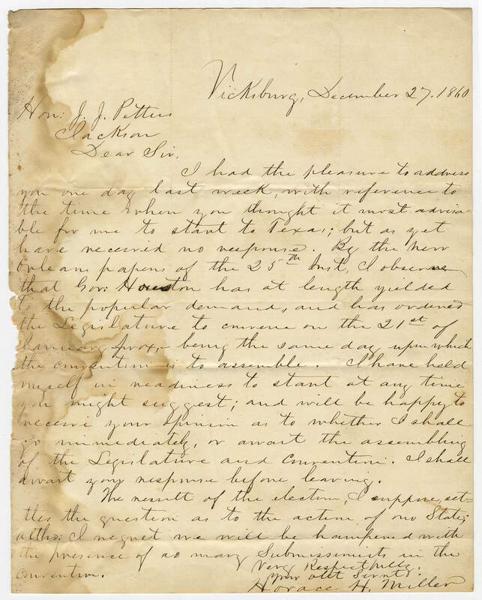 Vicksburg, December 27. 1860
Hon: J. J. Pettus
Jackson
Dear Sir,
I had the pleasure to address
you one day last week, with reference to
the time when you thought it most advisa-
ble for me to start to Texas; but as yet
have received no response. By the New
Orleans papers of the 25th Inst, I observe
that Gov: Houston has at length yielded
to the popular demand, and has ordered
the Legislature to convene on the 21st of
January prox: being the same day upon which
the convention is to assemble. I have held
myself in readiness to start at any time
you might suggest; and will be happy to
receive your opinion as to whether I shall
go immediately, or await the assembling
of the Legislature and convention. I shall
await your response before leaving.
The result of the election, I suppose, set-
tles the question as to the action of our State;
altho: I regret we will be hampered with
the presence of so many Submissionists in the
convention.
Very Respectfully,
Your obt Servt:
Horace H. Miller